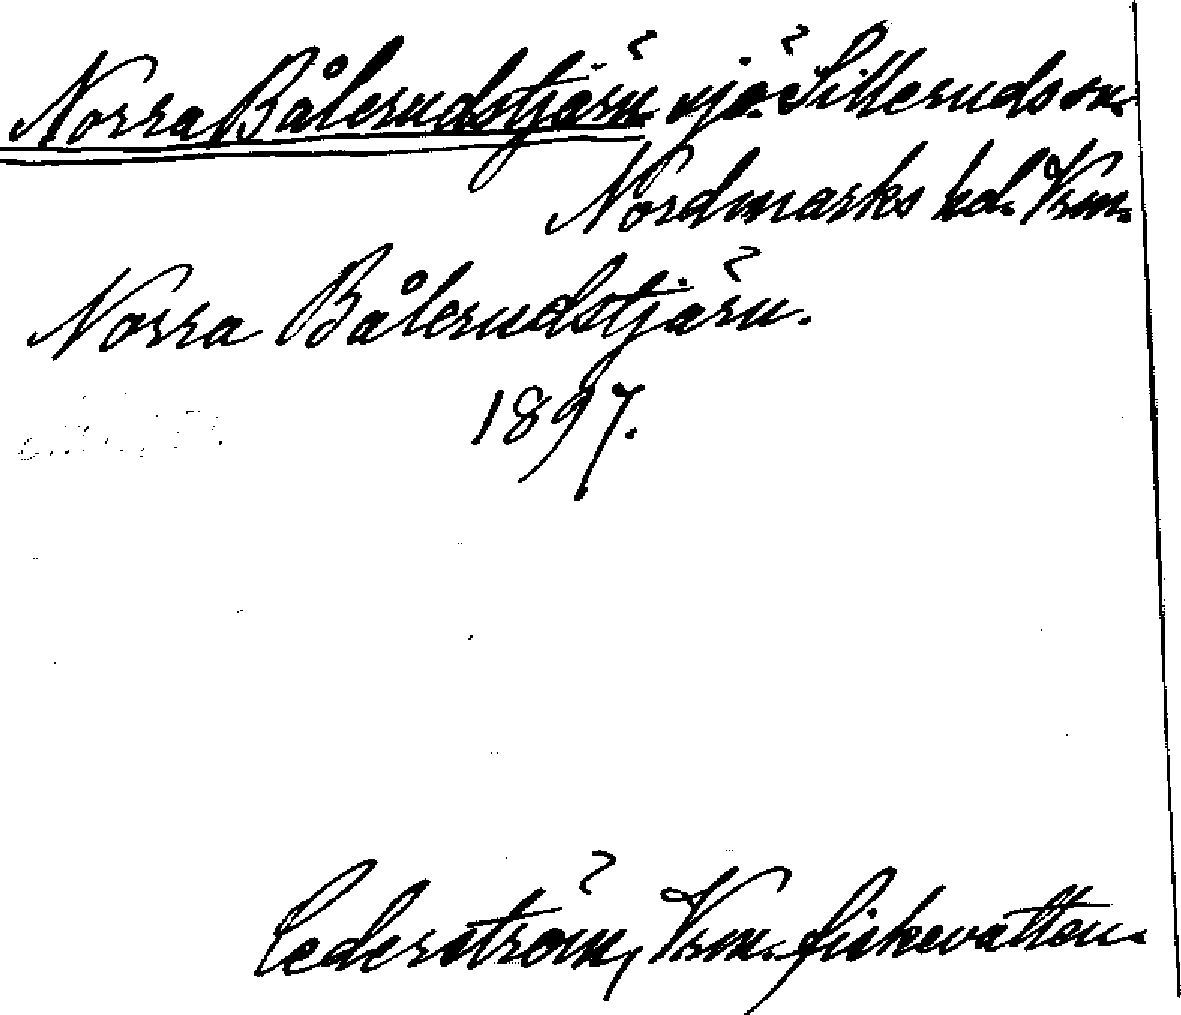 Norra Bålerudstjärn. sjö. Silleruds sn.
Nordmarks hd. Vrm.
Norra Bålerudstjärn.
1897.
Cederström, Vrm. fiskevatten.